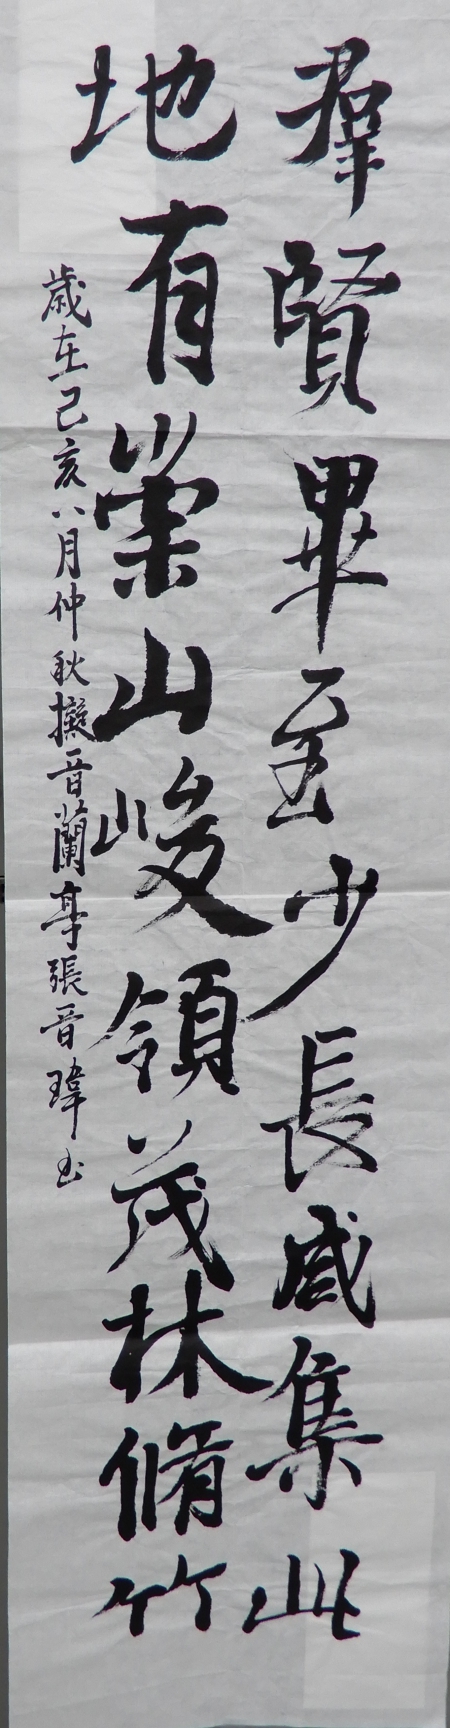 羣賢畢至少長咸集此
地有崇山峻領茂林脩竹
歲在己亥八月仲秋擬晉蘭亭張晉瑋书